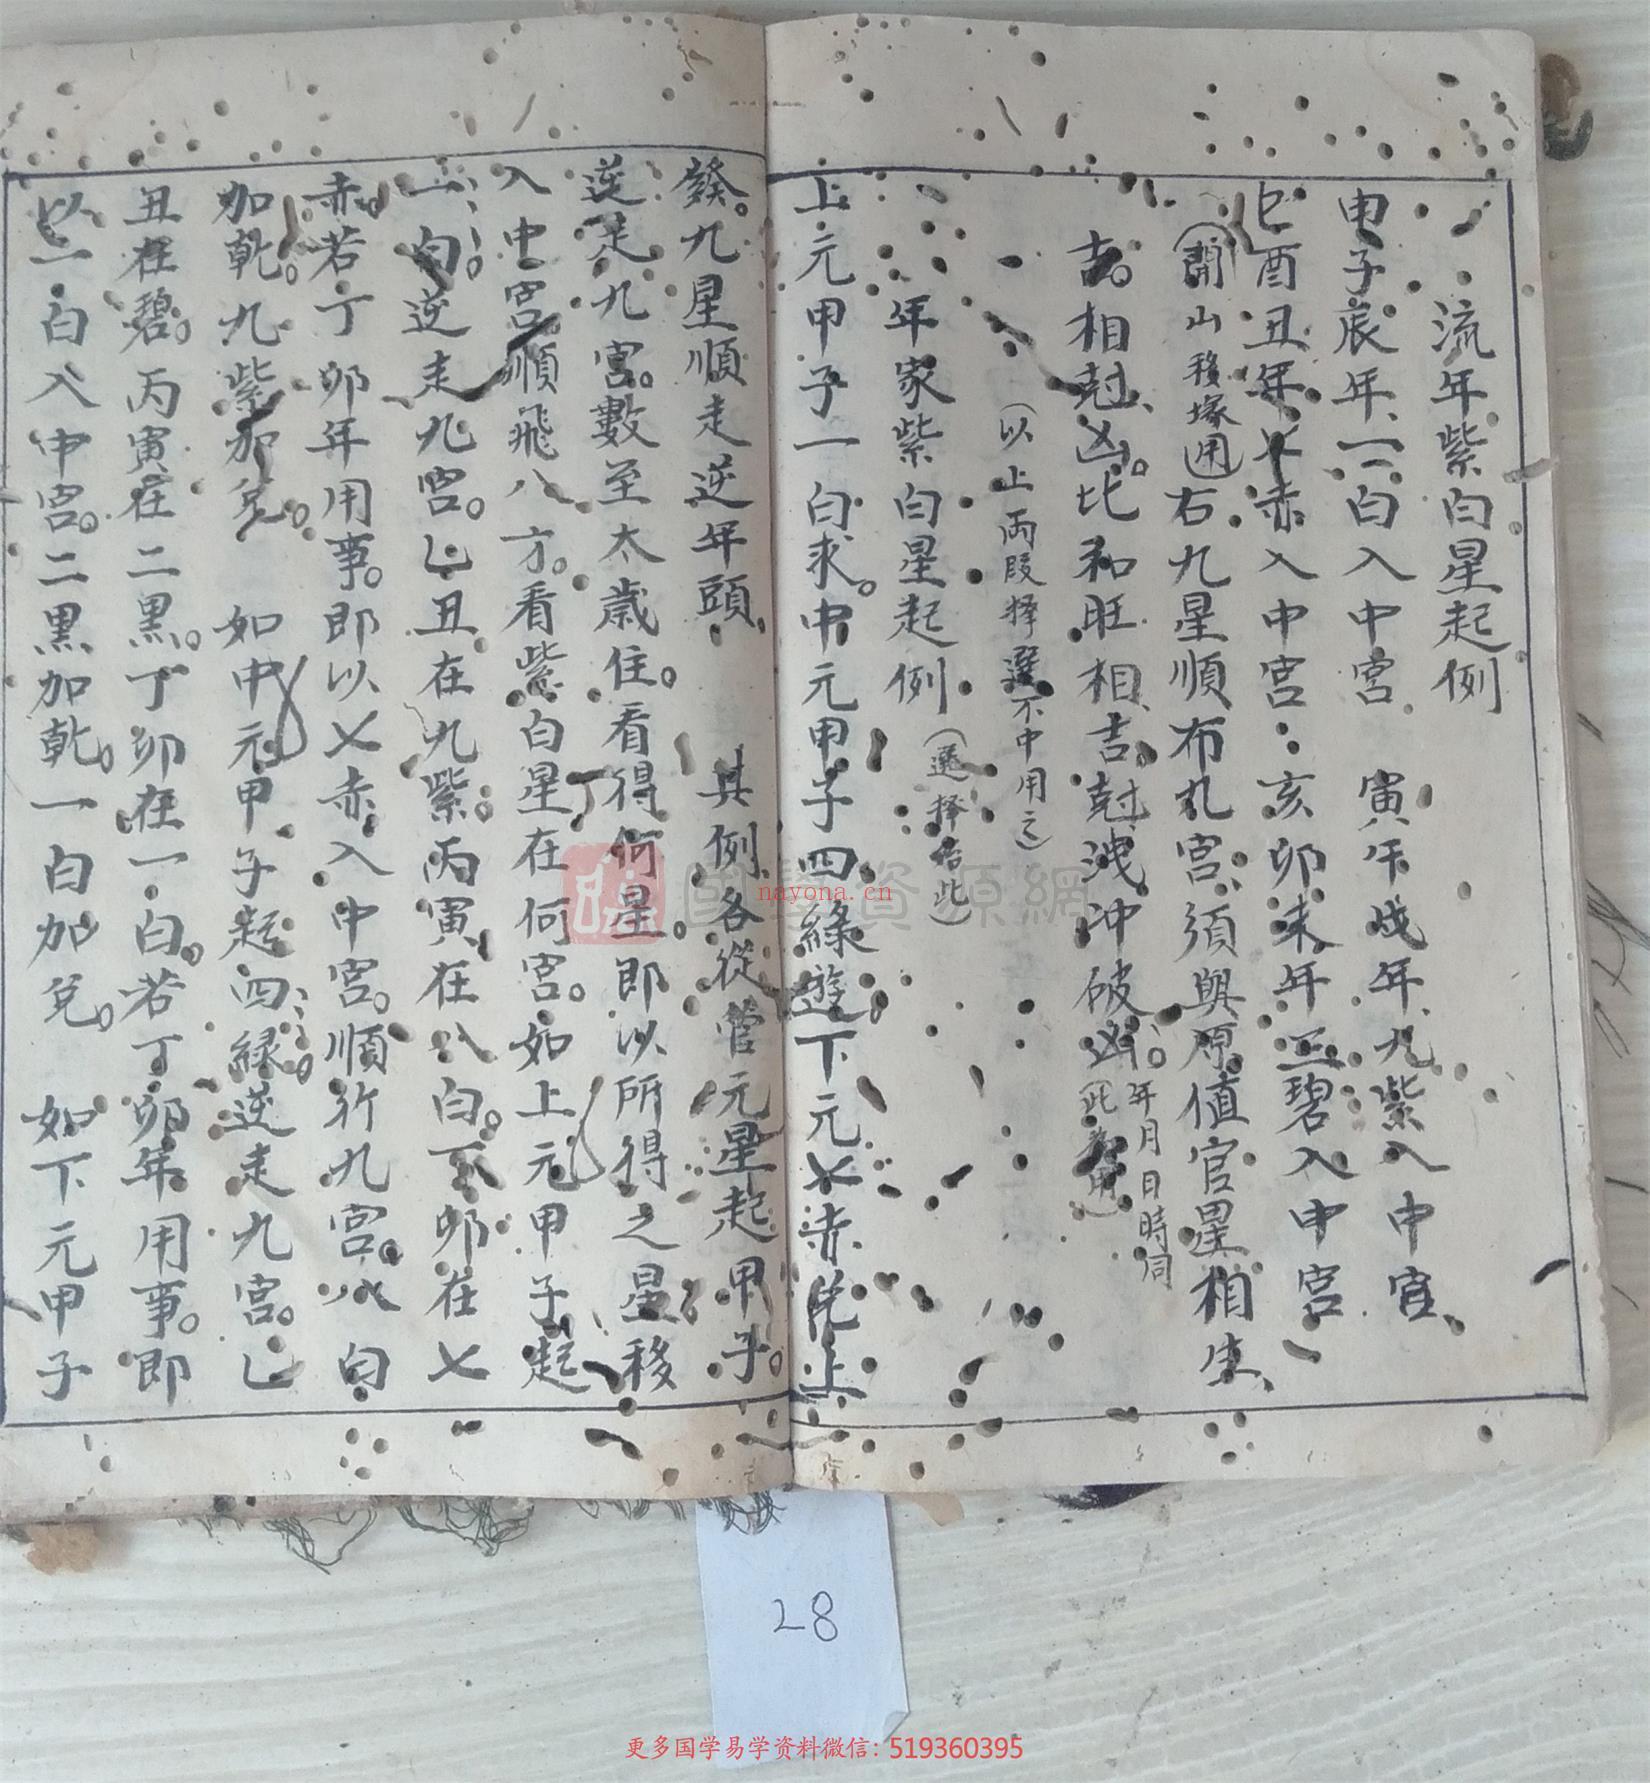 流年紫白星起例
申子辰年、一白入中宮 寅午戌年九紫入中宮、
巳酉丑年七赤入中宮 亥卯未年三碧入中宮
(開山移塚用)右九星順布九宮、須與原值官星相生、
吉。相尅凶。比和旺相吉、尅洩冲破凶。年月日時同(此為用)
(以上兩段擇選不中用之)
年家紫白星起例(選擇佔此)
上元甲子一白求。中元甲子四綠遊。下元七赤兌上
發。九星順走逆年頭、 其例各從管元星起甲子。
逆走九宮。數至太歲住。看得何星。即以所得之星移
入中宮順飛八方。看紫白星在何宮。如上元甲子起
一白。逆走九宮。乙丑在九紫。丙寅在八白。丁卯在七
赤。若丁卯年用事。即以七赤入中宮。順行九宮。八白
加乾。九紫加兌。 如中元甲子起四綠。逆走九宮。乙
丑在碧。丙寅在二黑。丁卯在一白。若丁卯年用事。即
以一白入中宮。二黑加乾。一白加兌。 如下元甲子
國學資源網
nayona.cn
28
更多国学易学资料微信：519360395